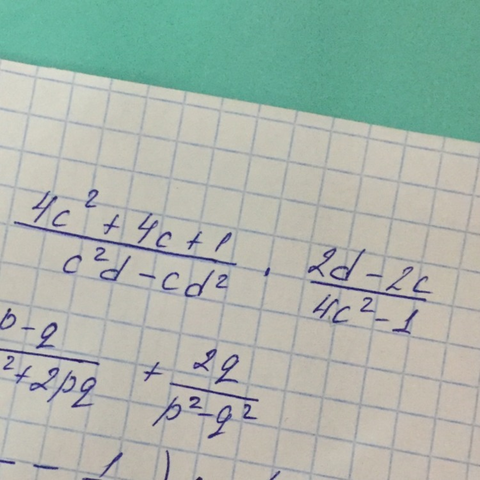 (4c² + 4c + 1)/(c²d - cd²) · (2d - 2c)/(4c² - 1)
(p - q)/(² + 2pq) + 2q/(p² - q²)
- 1 )